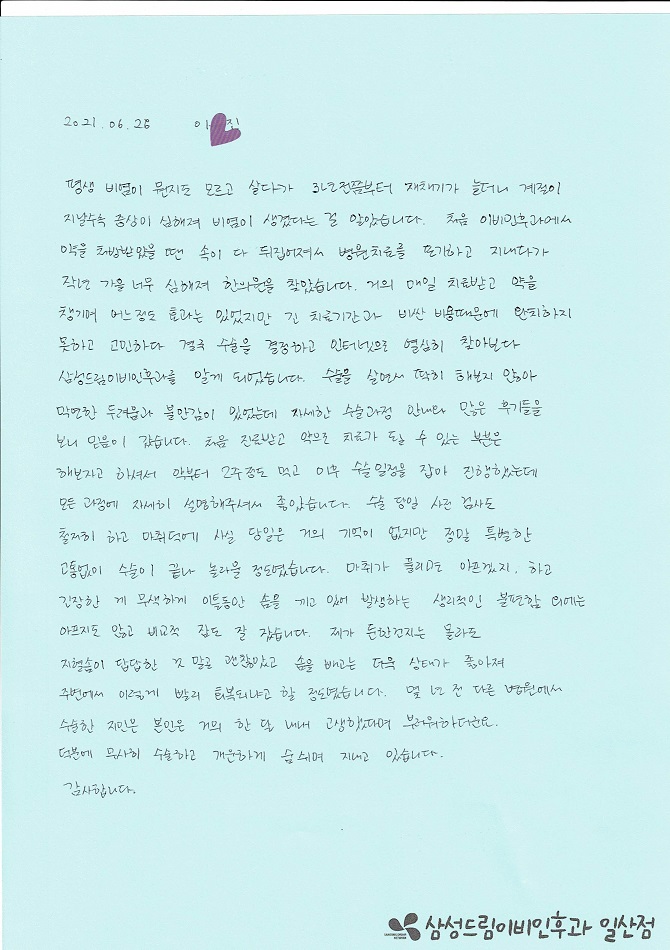 2021.06.28 이 진
평생 비염이 뭔지도 모르고 살다가 3년전쯤부터 재채기가 늘더니 계절이
지날수록 증상이 심해져 비염이 생겼다는 걸 알았습니다. 처음 이비인후과에서
약을 처방받았을 땐 속이 다 뒤집어져서 병원치료를 포기하고 지내다가
작년 가을 너무 심해져 한의원을 찾았습니다. 거의 매일 치료받고 약을
챙기며 어느정도 효과는 있었지만 긴 치료기간과 비싼 비용때문에 완치하지
못하고 고민하다 결국 수술을 결정하고 인터넷으로 열심히 찾아보다
삼성드림이비인후과를 알게 되었습니다. 수술을 살면서 딱히 해보지 않아
막연한 두려움과 불안감이 있었는데 자세한 수술과정 안내와 많은 후기들을
보니 믿음이 갔습니다. 처음 진료받고 약으로 치료가 될 수 있는 부분은
해보자고 하셔서 약부터 2주정도 먹고 이후 수술일정을 잡아 진행했는데
모든 과정에 자세히 설명해주셔서 좋았습니다. 수술 당일 사전 검사도
철저히 하고 마취덕에 사실 당일은 거의 기억이 없지만 정말 특별한
고통없이 수술이 끝나 놀라울 정도였습니다. 마취가 풀리면 아프겠지, 하고
긴장한 게 무색하게 이틀동안 솜을 끼고 있어 발생하는 생리적인 불편함 외에는
아프지도 않고 비교적 잠도 잘 잤습니다. 제가 둔한건지는 몰라도
지혈솜이 답답한 것 말곤 괜찮았고 솜을 빼고는 더욱 상태가 좋아져
주변에서 이렇게 빨리 회복되냐고 할 정도였습니다. 몇 년 전 다른 병원에서
수술한 지인은 본인은 거의 한 달 내내 고생했다며 부러워하더군요.
덕분에 무사히 수술하고 개운하게 숨쉬며 지내고 있습니다.
감사합니다.
삼성드림이비인후과 일산점